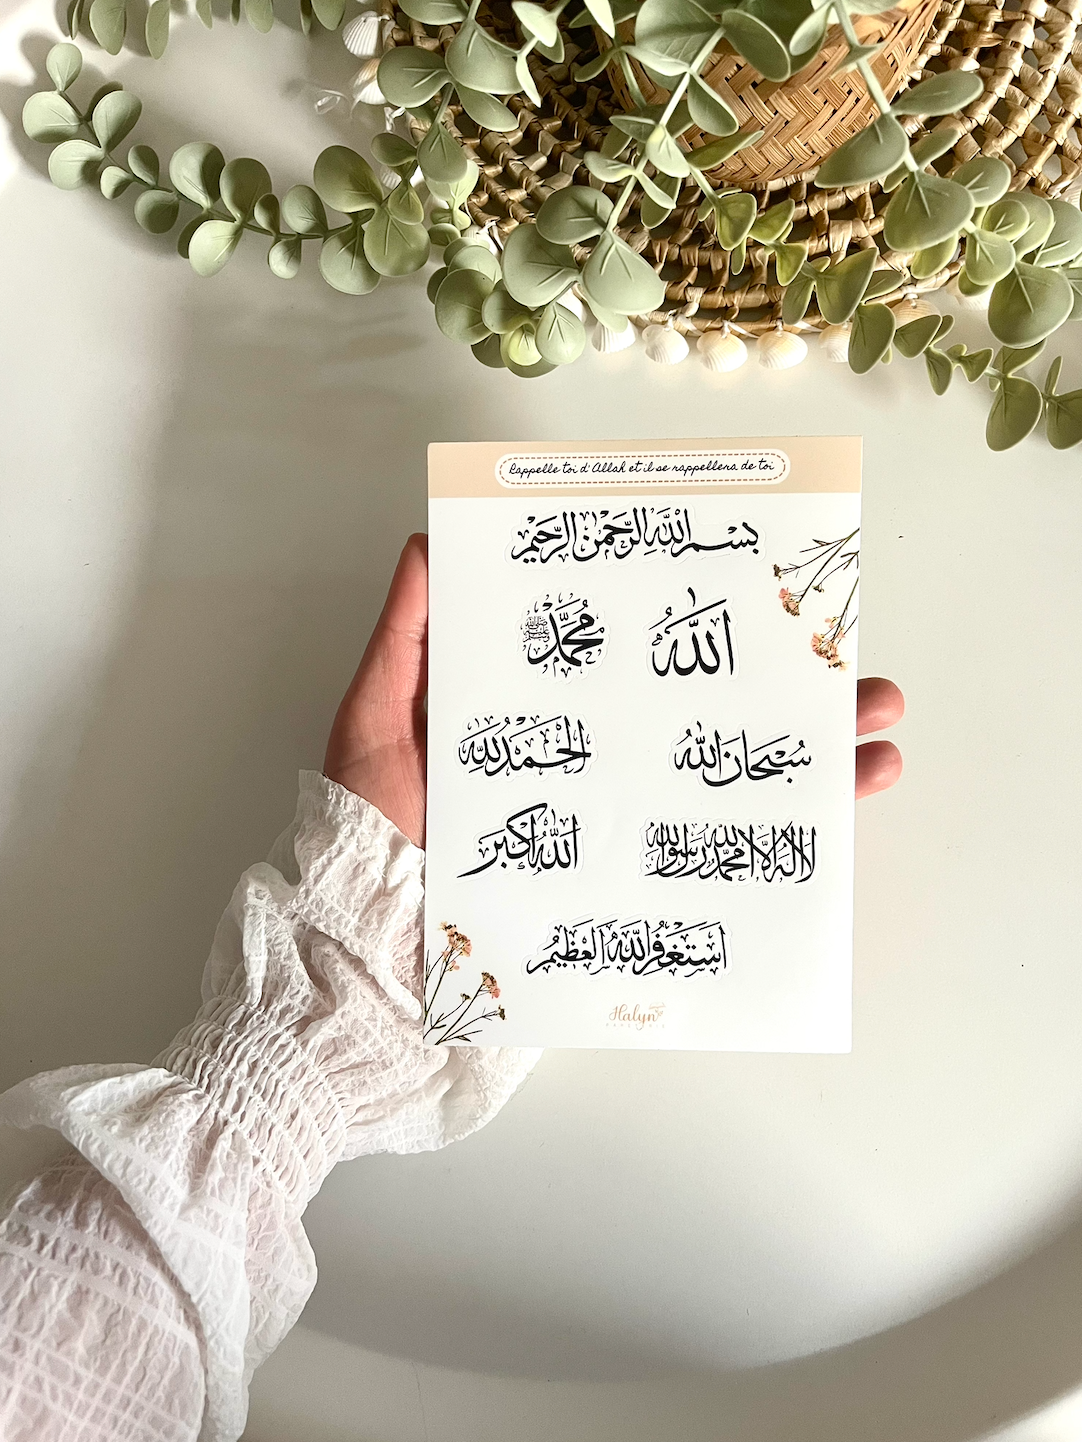 Rappelle toi d'Allah et il se rappellera de toi
بِسْمِ اللَّهِ الرَّحْمَنِ الرَّحِيمِ
اللَّهُ
مُحَمَّدٌ ﷺ
سُبْحَانَ اللَّهِ
الْحَمْدُ لِلَّهِ
لا إله إلا الله محمد رسول الله
اللَّهُ أَكْبَر
أَسْتَغْفِرُ اللَّهَ الْعَظِيمَ
Halyn